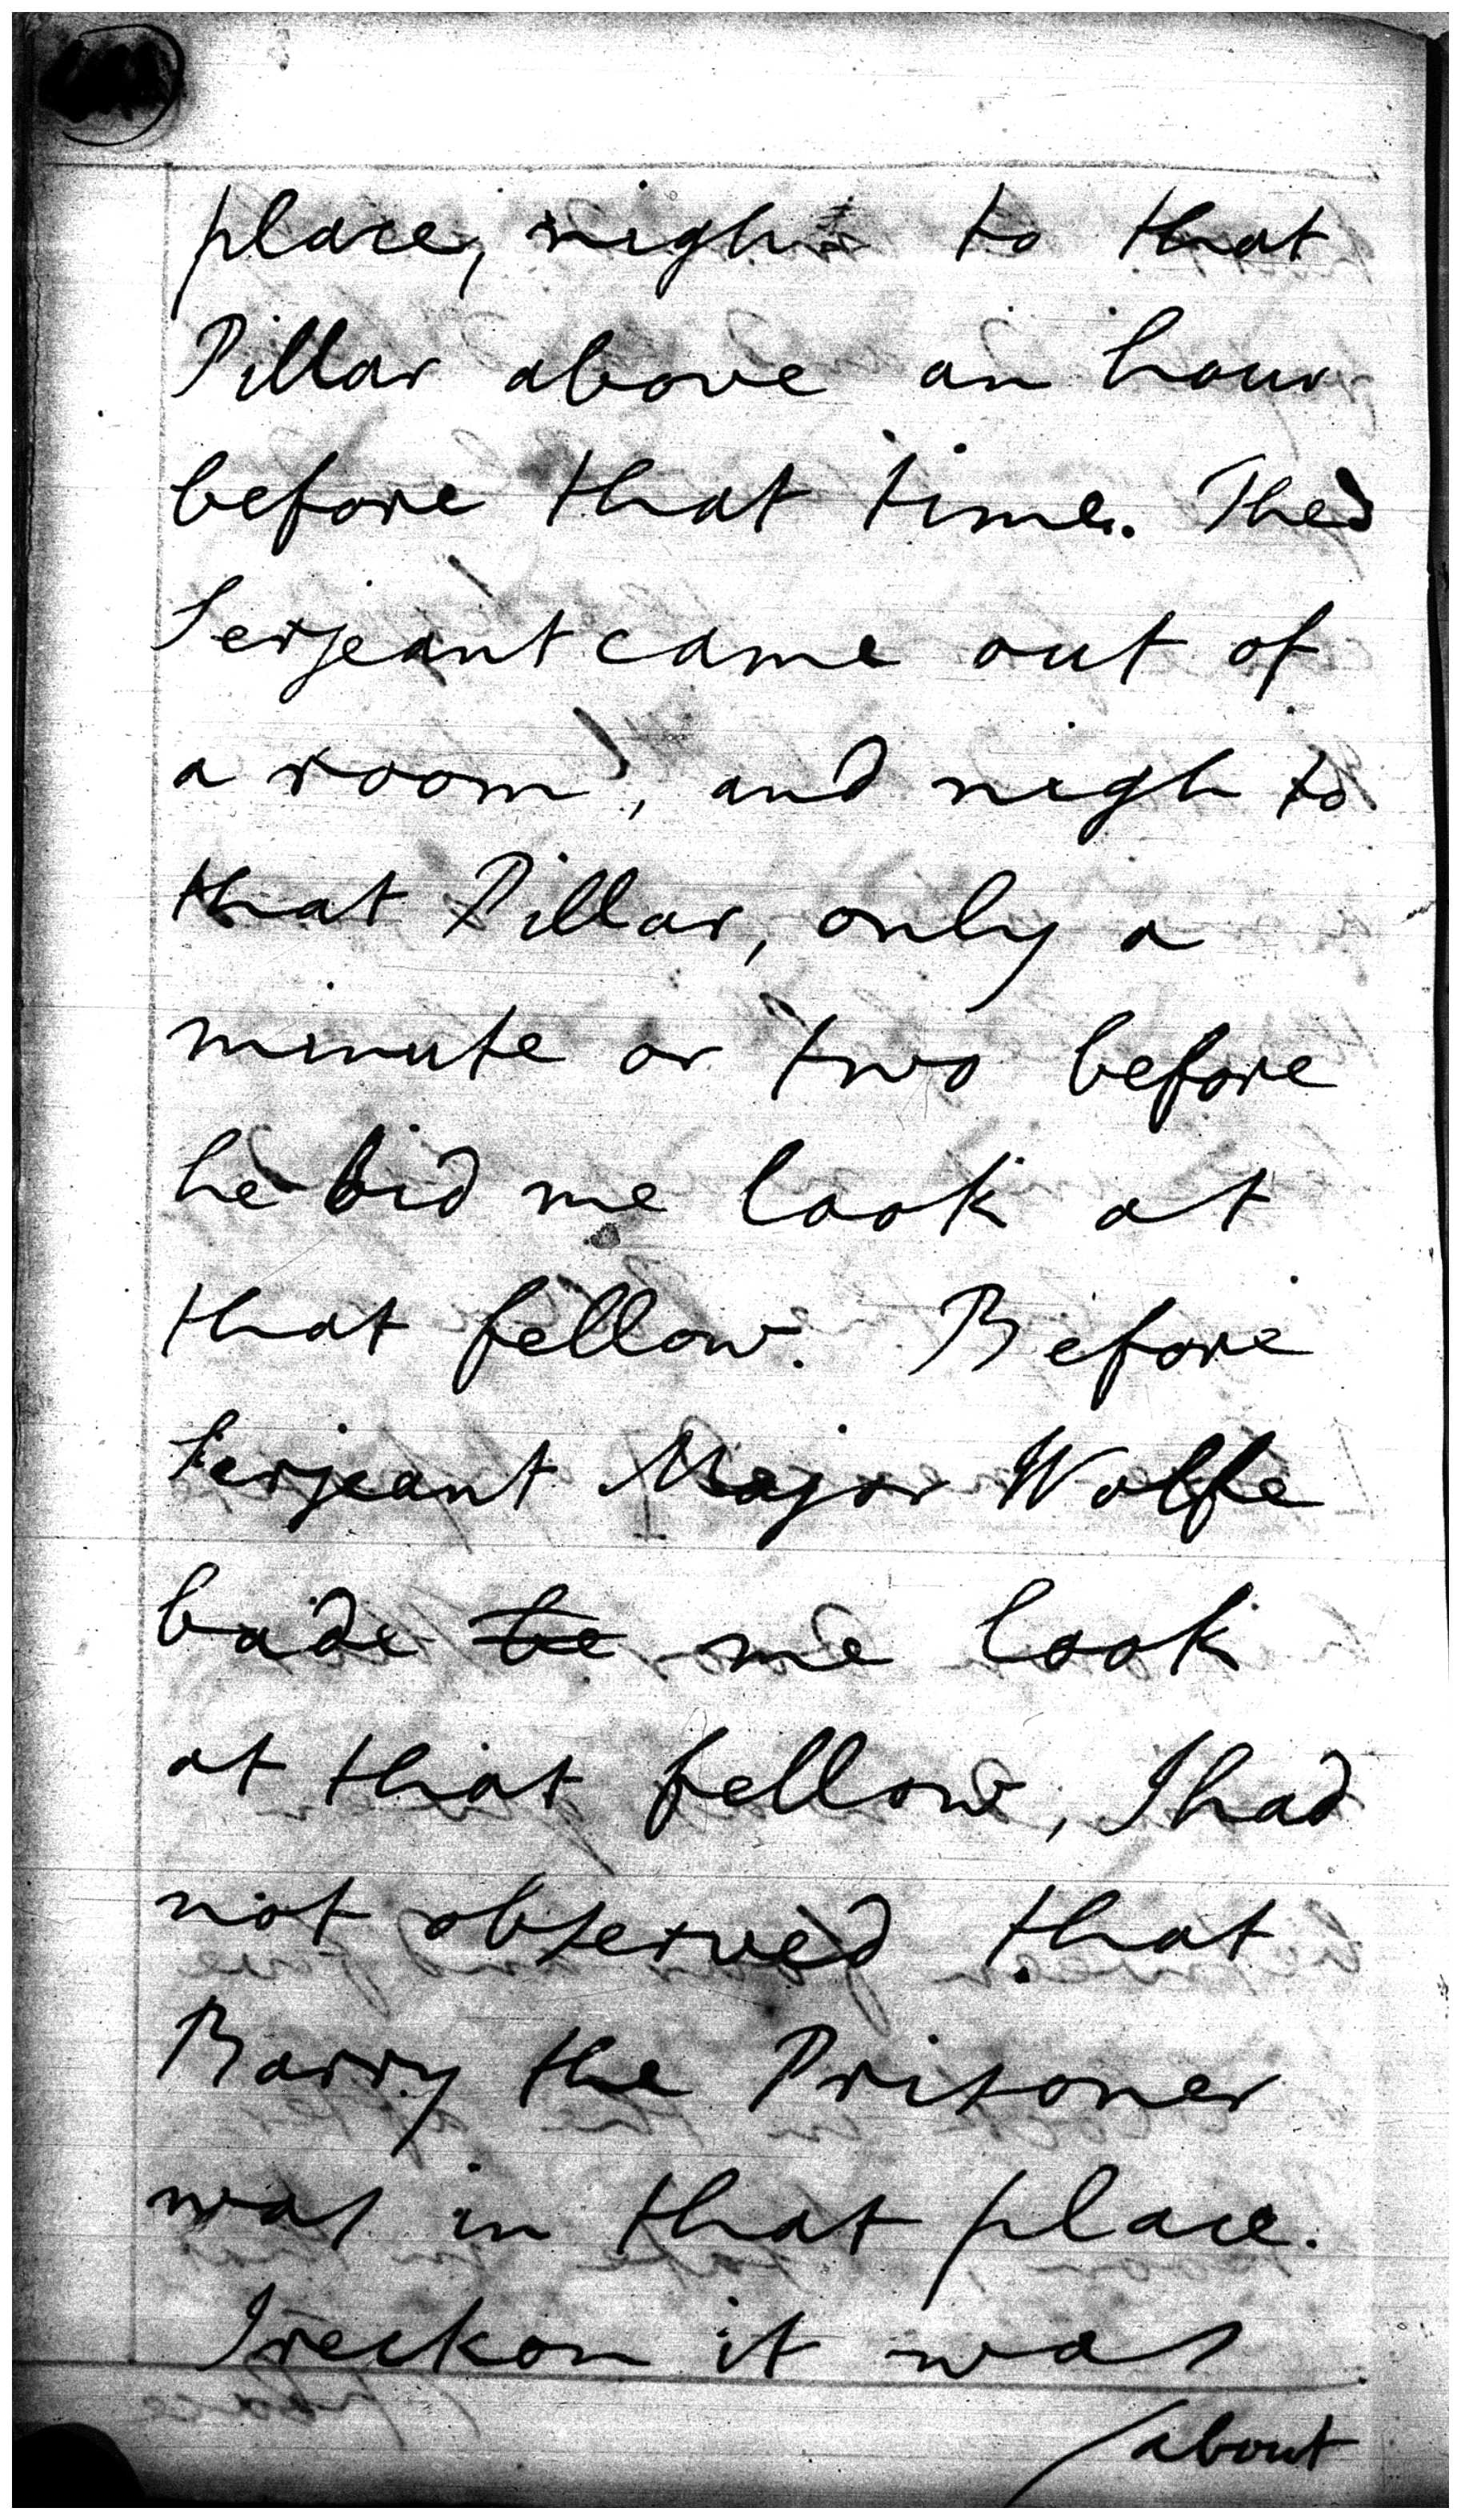 place, nigh to that
Pillar above an hour
before that time. The
Serjeant came out of
a room, and nigh to
that Pillar, only a
minute or two before
he bid me look at
that fellow. Before
Serjeant Major Wolfe
bade te me look
at that fellow, I had
not observed that
Barry the Prisoner
was in that place.
I reckon it was
about